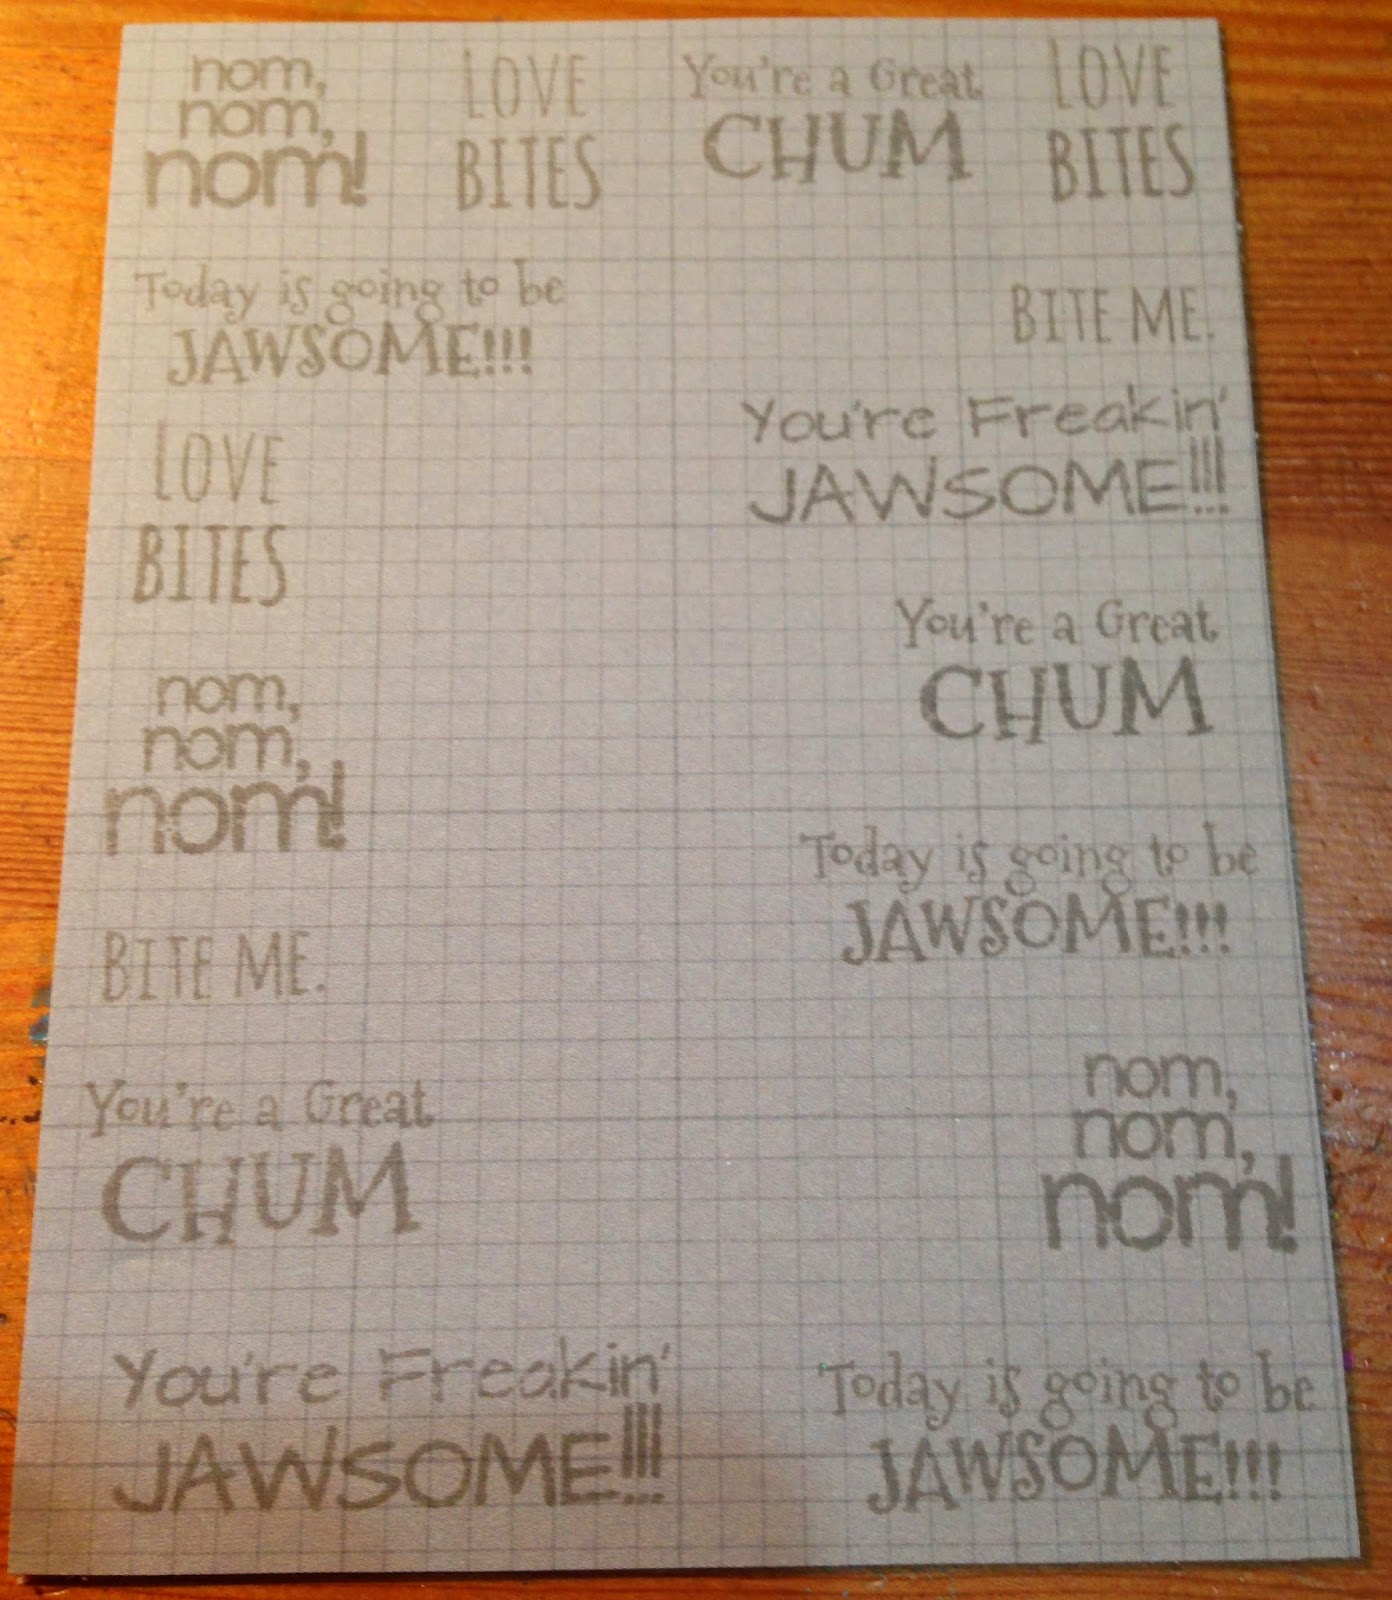 nom,
nom,
nom!
LOVE
BITES
You're a Great
CHUM
LOVE
BITES
Today is going to be
JAWSOME!!!
BITE ME.
You're Freakin'
JAWSOME!!!
LOVE
BITES
You're a Great
CHUM
nom,
nom,
nom!
Today is going to be
JAWSOME!!!
BITE ME.
You're a Great
CHUM
nom,
nom,
nom!
You're Freakin'
JAWSOME!!!
Today is going to be
JAWSOME!!!